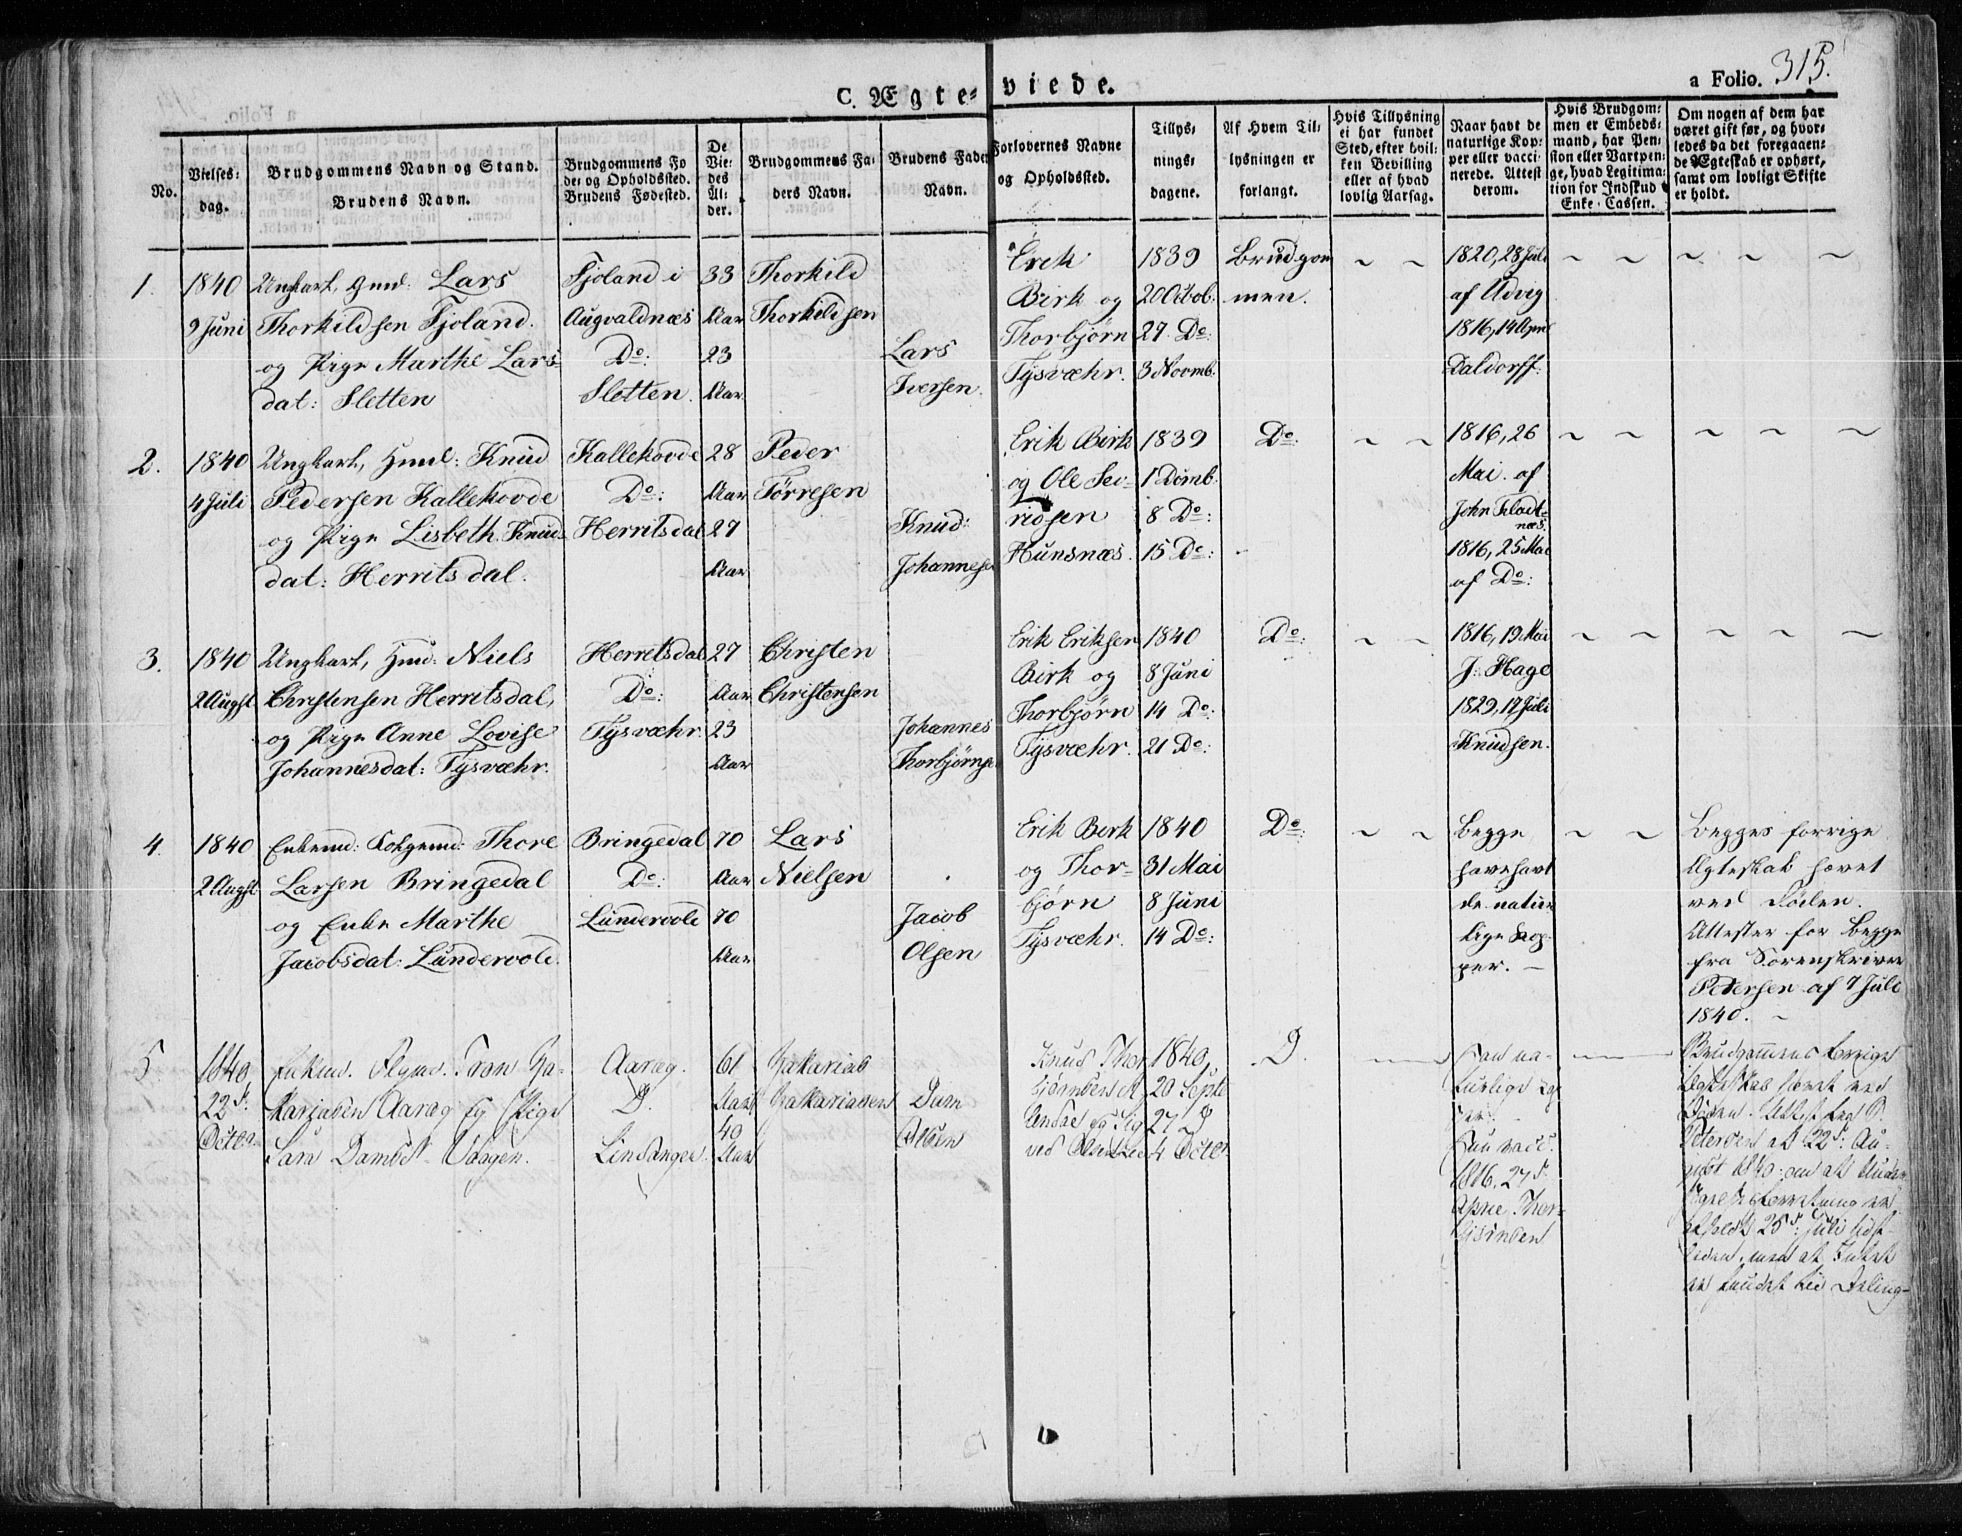 C. Ægteviede.
a Folio. 315.
No.
Vielsesdag.
Brudgommens Navn og Stand. Brudens Navn.
Brudgommens Føde= og Opholdssted. Brudens Fødested.
De Viedes Alder.
Brudgommens Faders Navn.
Brudens Faders Navn.
Forlovernes Navne og Opholdssted.
Tillysningsdagene.
Af Hvem Tillysningen er forlangt.
Hvis Tillysning ei har fundet Sted, efter hvilken Bevilling eller af hvad lovlig Aarsag.
Naar havt de naturlige Kopper eller vaccinerede. Attest derom.
Hvis Brudgommen er Embedsmand, har Pension eller Vartpenge, hvad Legitimation for Indskud i Enke=Cassen.
Om nogen af dem har været gift før, og hvorledes da det foregaaende Ægteskab er ophørt, samt om lovligt Skifte er holdt.
1.
1840
9 Juni
Ungkarl, Hmd: Lars
Thorkildsen Fjoland.
og Pige Marthe Lars=
dat: Sletten
Fjoland i
Augvaldnæs
Do:
Sletten.
33
Aar
23
Aar
Thorkild
Thorkildsen
Lars
Iversen.
Erik
Birk og
Thorbjørn
Tysvæhr.
1839
20 Octob.
27 Do:
3 Novmb.
Brudgom
men.
~ ~
1820, 28 Juli
af Udvig
1816, 14 April
Daldorff.
~ ~
~ ~ ~ ~
2.
1840
4 Juli
Ungkarl, Hmd: Knud
Pedersen Kallekovde
og Pige Lisbeth Knuds
dat: Herritsdal.
Kallekovde
Do:
Herritsdal
28
Aar
27
Aar
Peder
Tørresen
Knud:
Johannesen
Erik Birk
og Ole Siv=
ridsen
Hunsnæs.
1839
1 Decmb.
8 Do:
15 Do:
Do:
~ ~
1816, 26
Mai. af
John Flodt=
næs.
1816, 25 Mai
af Do:
~ ~
~ ~ ~ ~
3.
1840
2 Augst
Ungkarl, Hmd: Niels
Christensen Herritsdal,
og Pige Anne Lovise
Johannesdat: Tysvæhr.
Herritsdal
Do:
Tysvæhr.
27
Aar
23
Aar
Christen
Christensen
Johannes
Thorbjørnsen
Erik Eriksen
Birk og
Thorbjørn
Tysvæhr.
1840
8 Juni
14 Do:
21 Do:
Do:
~ ~
1816, 19 Mai
J: Hage
1829, 17 Juli
Knudsen.
~ ~
~ ~ ~ ~
4.
1840
2 Augst
Enkemd: Thore
Larsen Bringedal
og Enke Marthe
Jacobsdat: Lundervold.
Bringedal
Do:
Lundervold
70
Aar
70
Aar
Lars
Nielsen
Jacob
Olsen
Erik Birk
og Thor=
bjørn
Tysvæhr.
1840
31 Mai
8 Juni
14 Do:
Do:
~ ~
Begge
have havt
de natur
lige Kop=
per. —
~ ~
Begges forrige
Ægteskab hævet
ved Døden.
Attester for Begge
fra Sorenskriver
Petersen af 7 Juli
1840. —
5.
1840
22d:
Octob.
Enkmd. Tron Za=
kariasen Aarag og Pige
Sara Damsd.
Aarag.
D.
61
Aar
40
Aar
Zakarias
Zakariassen
Dam
Olsen
Knud Thor
bjørnsen
og Sig
ved Olsen
1840
20 Septb
27 D
4 Octob.
D.
Han na=
turlige Kop
per. -
Hun vacc.
1816, 27d.
Thor=
bjørnsen
Brudgommens forrige
Ægteskab hævet ved
Døden. Attest fra S.
Petersen af 22d: Au=
gust 1840 om at
25d: Juli sidst
at Intet